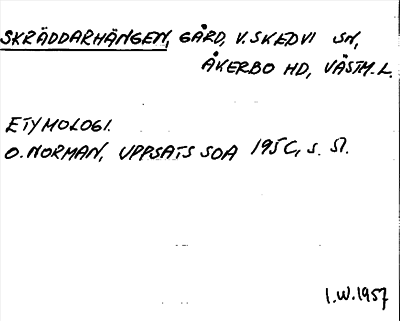 SKRÄDDARHÄNGEN, GÅRD, V. SKEDVI SN,
ÅKERBO HD, VÄSTM. L.
ETYMOLOGI.
O. NORMAN, UPPSATS SOA 195C, S. 51.
I.W. 1957